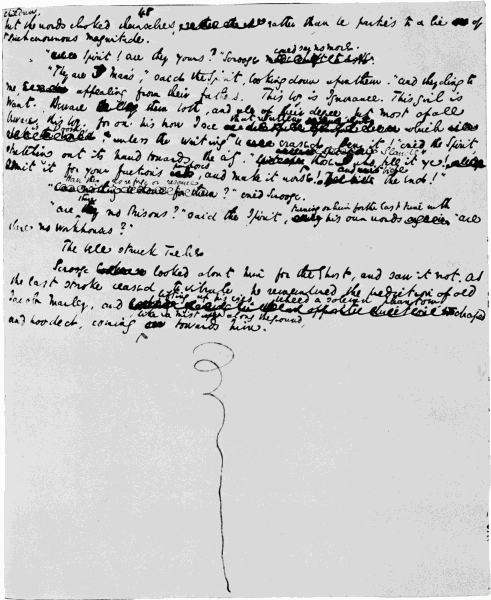 children, 48
but the words choked themselves, rather than be parties to a lie of
such enormous magnitude.
"Spirit! are they yours?" Scrooge could say no more.
"They are Man's," said the Spirit, looking down upon them. "and they cling to
me, appealing from their fathers. This boy is Ignorance. This girl is
Want. Beware them both, and all of their degree, but most of all
beware this boy, for on his brow I see that written which is
unless the writing be erased. Deny it!" cried the Spirit,
stretching out its hand towards the city. "Slander those who tell it ye!
Admit it for your factious purposes, and make it worse. And bide the end!"
"Have they no refuge or resource?" cried Scrooge.
"are there no Prisons?" said the Spirit, turning on him for the last time with his own words "are
there no workhouses?"
The bell struck Twelve
Scrooge looked about him for the Ghost, and saw it not. As
the last stroke ceased to vibrate, he remembered the prediction of old
Jacob Marley, and lifting up his eyes, beheld a solemn phantom, draped
and hooded, coming like a mist along the ground, towards him.